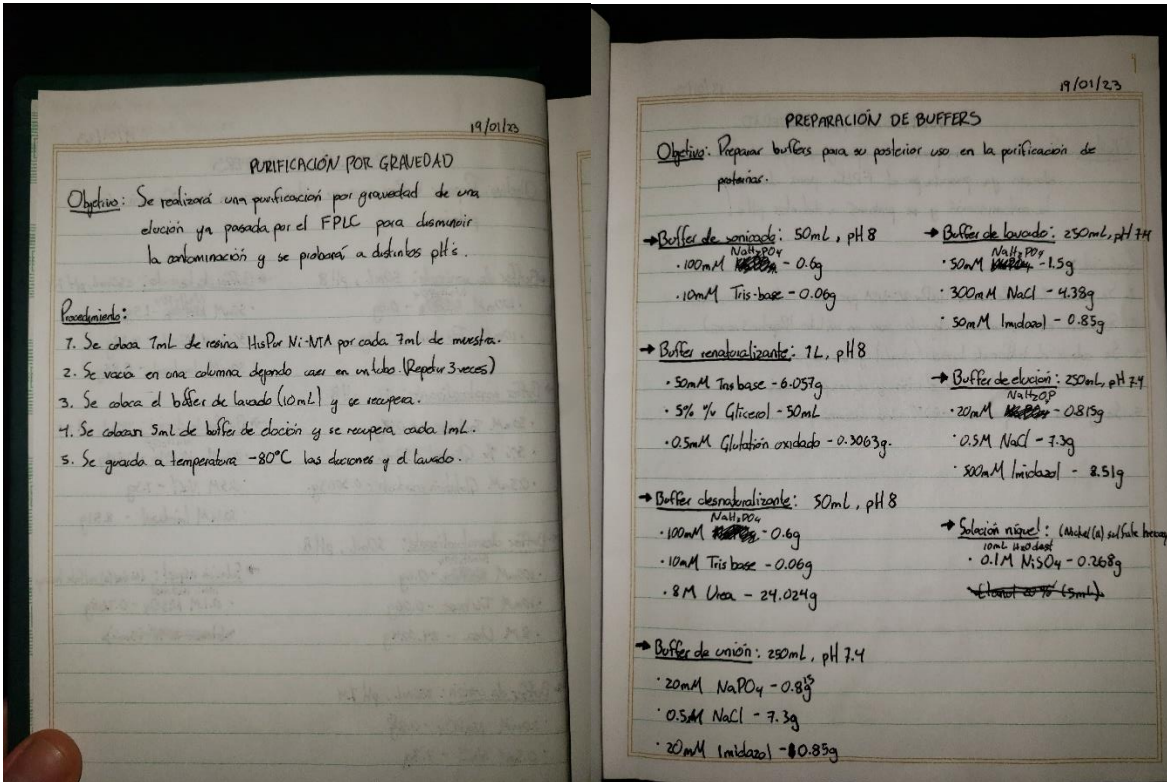 19/01/23
PURIFICACIÓN POR GRAVEDAD
Objetivo: Se realizará una purificación por gravedad de una
elución ya pasada por el FPLC para disminuir
la contaminación y se probará a distintos pH's.
Procedimiento:
1. Se coloca 1mL de resina HisPur Ni-NTA por cada 7ml de muestra.
2. Se vacía en una columna dejando caer en un tubo. (Repetir 3 veces)
3. Se coloca el búffer de lavado (10mL) y se recupera.
4. Se colocan 5ml de buffer de elución y se recupera cada 1mL.
5. Se guarda a temperatura -80°C las eluciones y el lavado.
1
19/01/23
PREPARACIÓN DE BUFFERS
Objetivo: Preparar buffers para su posterior uso en la purificación de
proteínas.
→ Buffer de sonicado: 50mL, pH 8
NaH₂PO₄
· 100mM - 0.6g
· 10mM Tris-base - 0.06g
→ Buffer renaturalizante: 1L, pH8
· 50mM Tris base - 6.057g
· 5% % Glicerol - 50mL
· 0.5mM Glutatión oxidado - 0.3063g.
→ Buffer desnaturalizante: 50mL, pH 8
NaH₂PO₄
· 100mM - 0.6g
· 10mM Tris base - 0.06g
· 8M Urea - 24.024g
→ Buffer de unión: 250mL, pH 7.4
· 20mM NaPO4 - 0.815g
· 0.5M NaCl - 7.3g
· 20mM Imidazol - 0.85g
→ Buffer de lavado: 250mL, pH 7.4
NaH₂PO₄
· 50mM - 1.5g
· 300mM NaCl - 4.38g
· 50mM Imidazol - 0.85g
→ Buffer de elución: 250mL, pH 7.4
NaH₂OP
· 20mM - 0.815g
· 0.5M NaCl - 7.3g
· 500mM Imidazol - 8.51g
→ Solución níquel: (Nickel(II) sulfate
10mL H₂O dest
· 0.1M NiSO₄ - 0.268g
Etanol 20% (5mL)